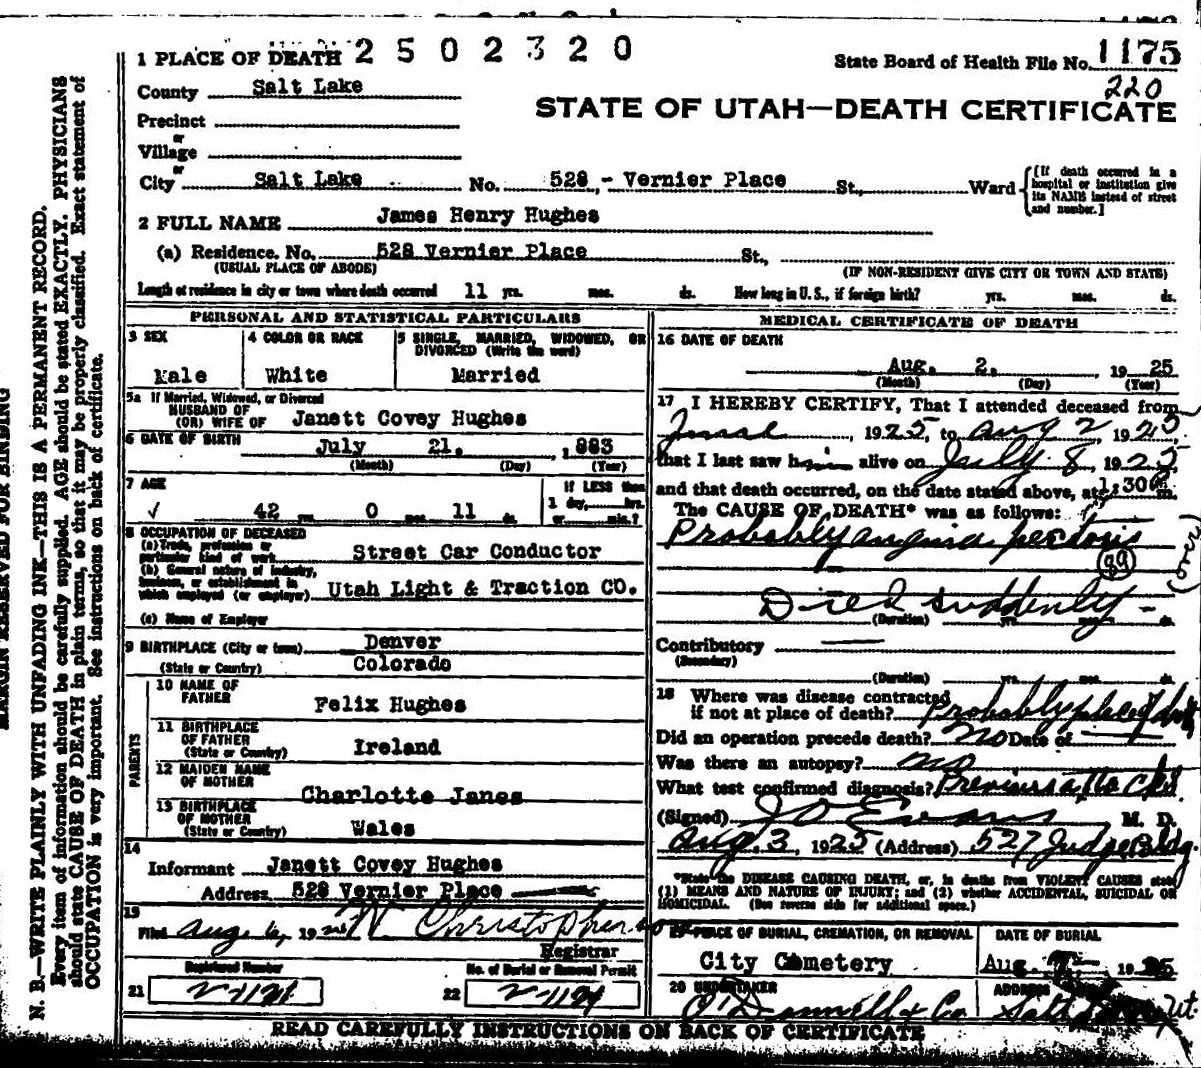 1 PLACE OF DEATH 2502320
State Board of Health File No. 1175
220
County Salt Lake
STATE OF UTAH—DEATH CERTIFICATE
Precinct
or
Village
or
City Salt Lake No. 528,- Vernier Place St., Ward
[If death occurred in a hospital or institution give its NAME instead of street and number.]
2 FULL NAME James Henry Hughes
(a) Residence. No. 528 Vernier Place St.,
(USUAL PLACE OF ABODE) (IF NON-RESIDENT GIVE CITY OR TOWN AND STATE)
Length of residence in city or town where death occurred 11 yrs. mos. ds. How long in U. S., if foreign birth? yrs. mos. ds.
PERSONAL AND STATISTICAL PARTICULARS
3 SEX Male
4 COLOR OR RACE White
5 SINGLE, MARRIED, WIDOWED, OR DIVORCED (Write the word) Married
5a If Married, Widowed, or Divorced
HUSBAND OF
(OR) WIFE OF Janett Covey Hughes
6 DATE OF BIRTH July 21. 1883
(Month) (Day) (Year)
7 AGE 42 yrs. 0 mos. 11 ds.
If LESS than
1 day, hrs.
or min.?
8 OCCUPATION OF DECEASED
(a) Trade, profession or
particular kind of work Street Car Conductor
(b) General nature of industry,
business, or establishment in
which employed (or employer) Utah Light & Traction CO.
(c) Name of Employer
9 BIRTHPLACE (City or town) Denver
(State or Country) Colorado
PARENTS
10 NAME OF
FATHER Felix Hughes
11 BIRTHPLACE
OF FATHER
(State or Country) Ireland
12 MAIDEN NAME
OF MOTHER Charlotte Janes
13 BIRTHPLACE
OF MOTHER
(State or Country) Wales
14
Informant Janett Covey Hughes
Address 528 Vernier Place
15
Filed Aug 6, 1925 W Christopherson
Registrar
Registered Number
21
No. of Burial or Removal Permit
22
MEDICAL CERTIFICATE OF DEATH
16 DATE OF DEATH
Aug. 2. 1925
(Month) (Day) (Year)
17 I HEREBY CERTIFY, That I attended deceased from
June, 1925, to Aug 2, 1925
that I last saw him alive on July 8, 1925
and that death occurred, on the date stated above, at 1:30 m.
The CAUSE OF DEATH* was as follows:
Probably angina pectoris
89
(over)
Died suddenly -
(Duration) yrs. mos. ds.
Contributory
(Secondary)
(Duration) yrs. mos. ds.
18 Where was disease contracted
if not at place of death? Probably place of death
Did an operation precede death? No Date of
Was there an autopsy? no
What test confirmed diagnosis? Previous attacks
(Signed) J O Evans M. D.
Aug. 3, 1925 (Address) 527 Judge Bldg.
*State the DISEASE CAUSING DEATH, or, in deaths from VIOLENT CAUSES state
(1) MEANS AND NATURE OF INJURY; and (2) whether ACCIDENTAL, SUICIDAL OR
HOMICIDAL. (See reverse side for additional space.)
PLACE OF BURIAL, CREMATION, OR REMOVAL
City Cemetery
DATE OF BURIAL
Aug. 1925
20 UNDERTAKER
O'Donnell & Co
ADDRESS
Salt Ut.
READ CAREFULLY INSTRUCTIONS ON BACK OF CERTIFICATE
MARGIN RESERVED FOR BINDING
N. B.—WRITE PLAINLY WITH UNFADING INK—THIS IS A PERMANENT RECORD.
Every item of information should be carefully supplied. AGE should be stated EXACTLY. PHYSICIANS
should state CAUSE OF DEATH in plain terms, so that it may be properly classified. Exact statement of
OCCUPATION is very important. See instructions on back of certificate.